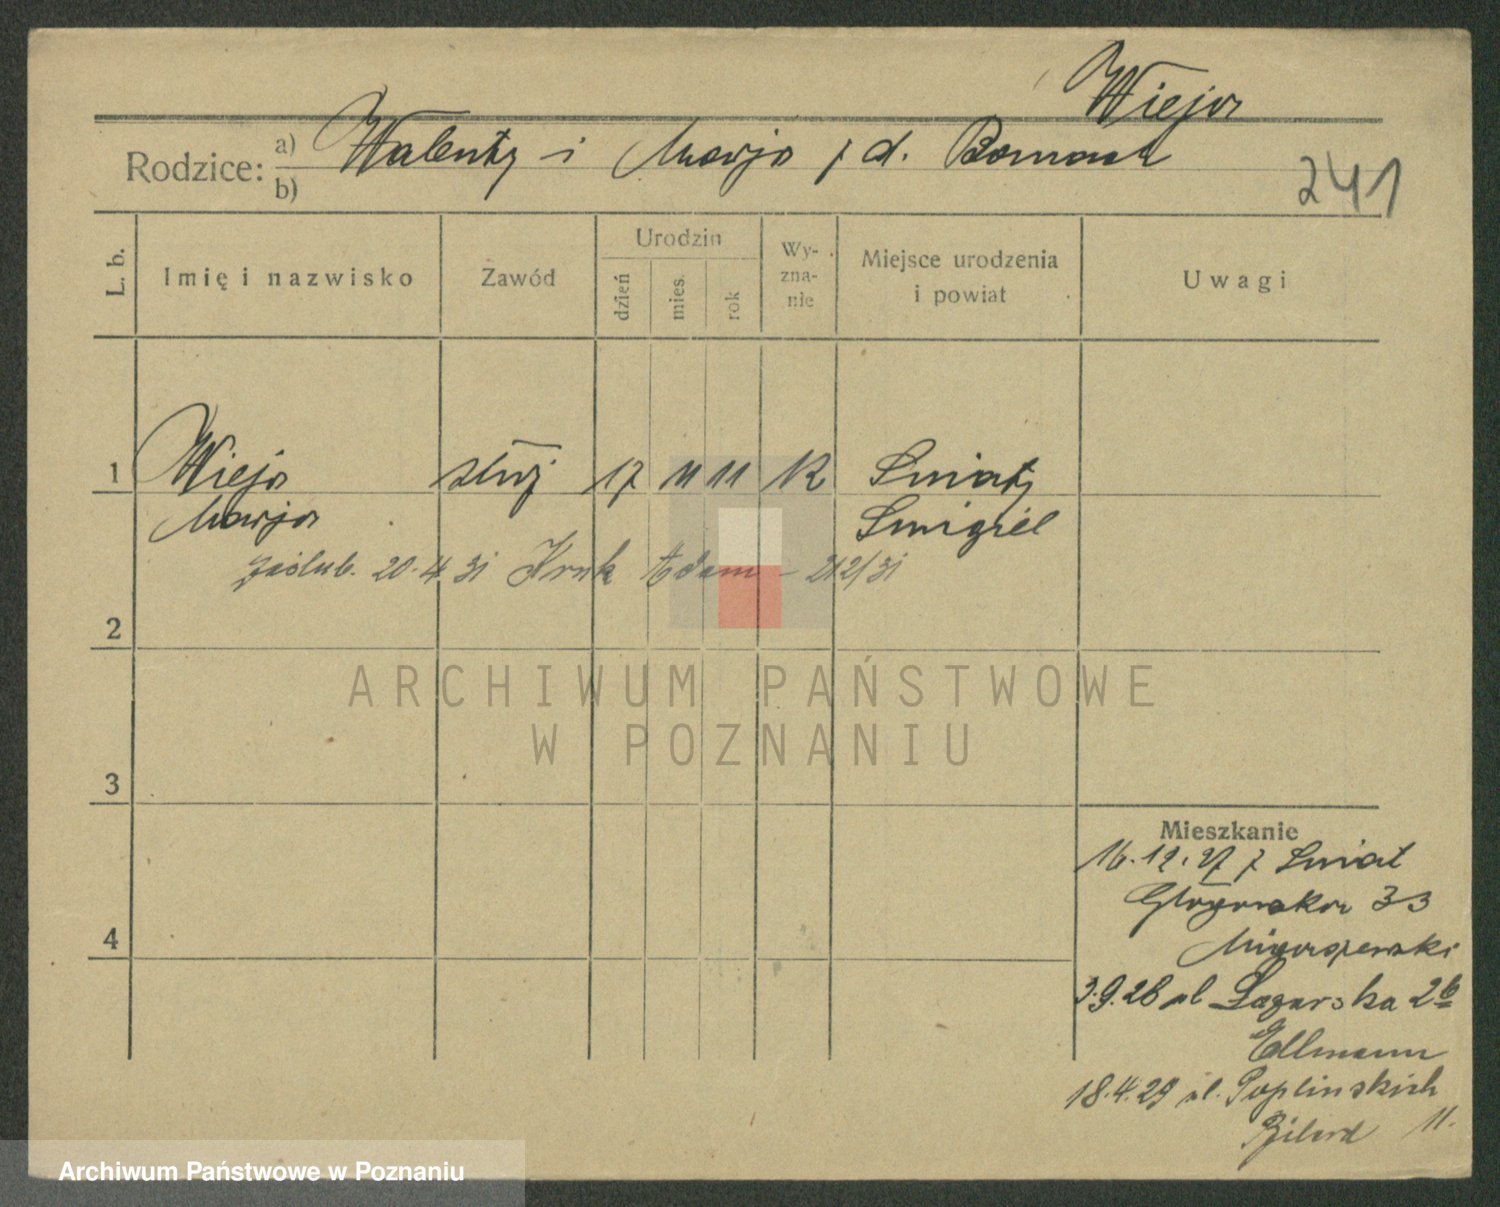 Wieja
Rodzice: a) Walenty i Marja z d. Bomask
b)
241
L. b. Imię i nazwisko Zawód Urodzin dzień mies. rok Wy-zna-nie Miejsce urodzenia i powiat Uwagi
1 Wieja służ 17 11 11 K Śniaty
Marja Śmigiel
zaślub. 20.4.31 Kruk Adam - 212/31
2
3
4
ARCHIWUM PAŃSTWOWE
W POZNANIU
Mieszkanie
16.12.27 z Śniat
Głogowska 33
3.9.28 ul Łazarska 2b
Ellmann
18.4.29 ul. Poplinskich
11.
Archiwum Państwowe w Poznaniu